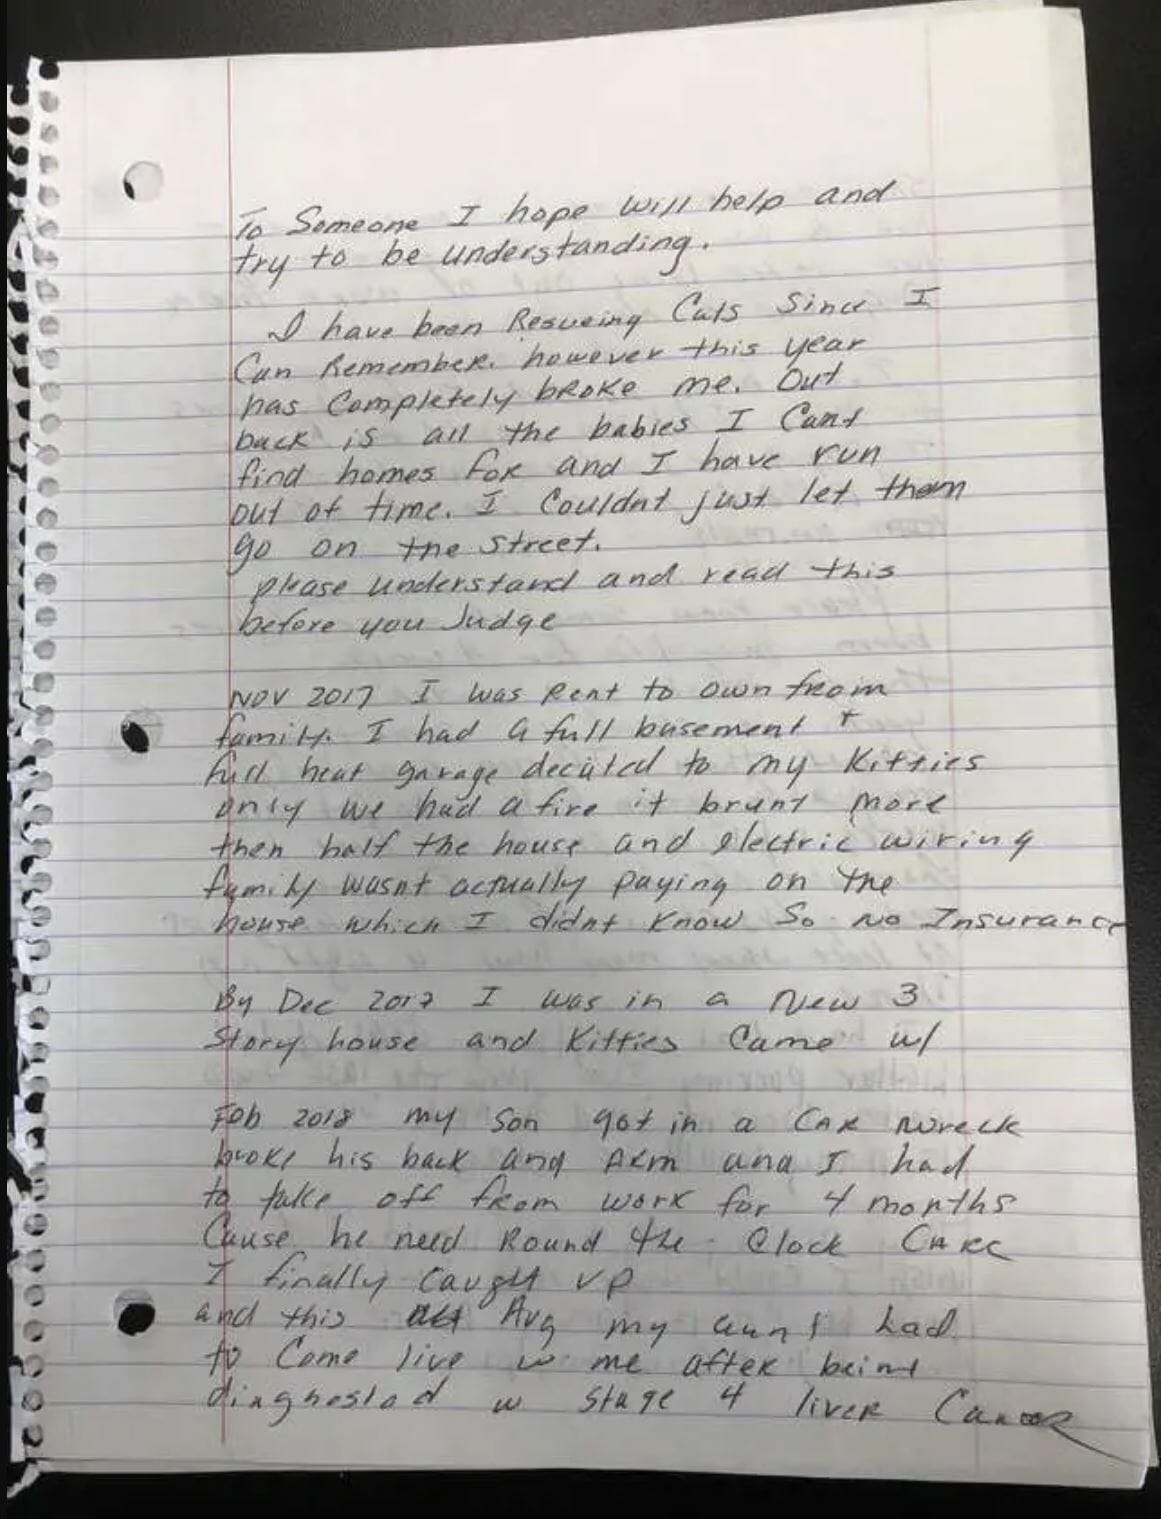 To Someone I hope will help and
try to be understanding.
I have been Rescueing Cats Since I
Can Remember. however this year
has Completely broke me. Out
back is all the babies I Cant
find homes for and I have run
out of time. I Couldnt just let them
go on the street.
please understand and read this
before you Judge
NOV 2017 I was Rent to own from
family. I had a full basement +
full heat garage decated to my Kitties
only we had a fire it brunt more
then half the house and electric wiring
family wasnt actually paying on the
house which I didnt Know So No Insurance
By Dec 2017 I was in a New 3
Story house and Kitties Came w/
Feb 2018 my Son got in a CAR wreck
broke his back and ARm and I had
to take off from work for 4 months
Cause he need Round the Clock CARe
I finally caught up
and this Aug my aunt had
to Come live w me after beint
diagnostad w stage 4 liver Cancer